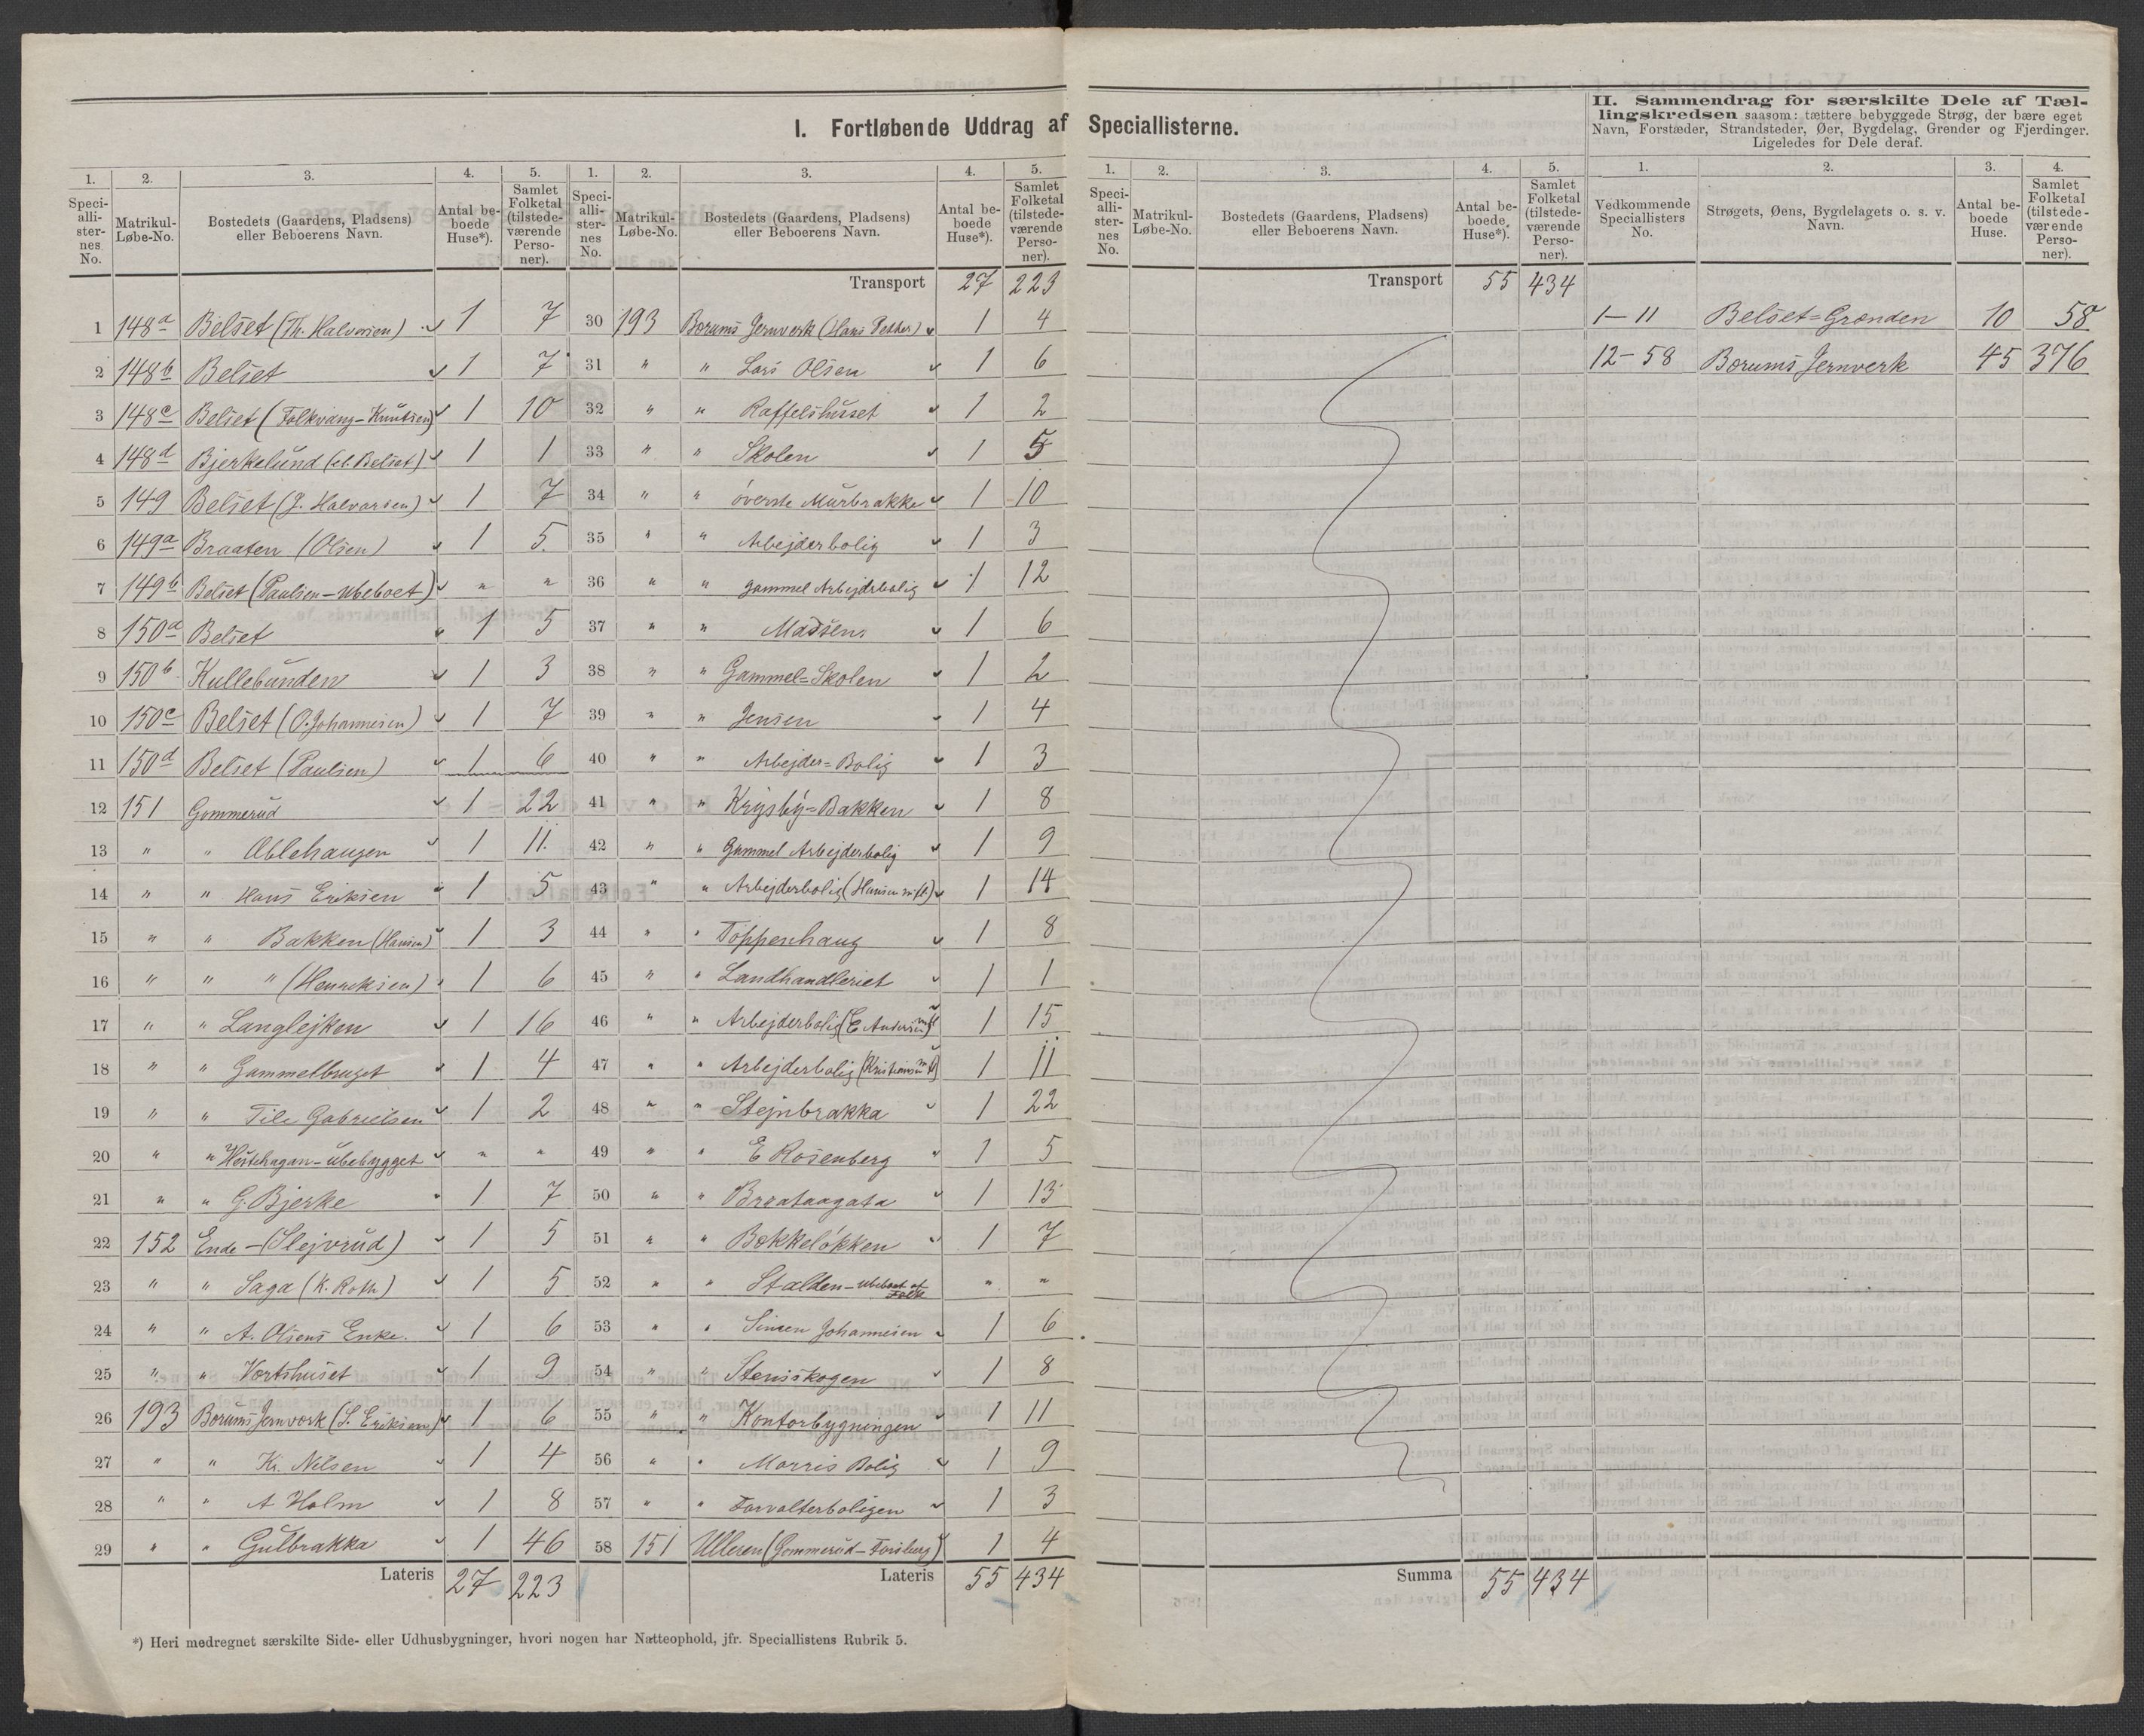 I. Fortløbende Uddrag af Speciallisterne.
II. Sammendrag for særskilte Dele af Tæl-
lingskredsen saasom: tættere bebyggede Strøg, der bære eget
Navn, Forstæder, Strandsteder, Øer, Bygdelag, Grender og Fjerdinger.
Ligeledes for Dele deraf.
1. 2. 3. 4. 5. 1. 2. 3. 4. 5. 1. 2. 3. 4. 5. 1. 2. 3. 4.
Speci-alli-ster-nes No. Matrikul-Løbe-No. Bostedets (Gaardens, Pladsens) eller Beboerens Navn. Antal be-boede Huse*). Samlet Folketal (tilstede-værende Perso-ner).
Speci-alli-ster-nes No. Matrikul-Løbe-No. Bostedets (Gaardens, Pladsens) eller Beboerens Navn. Antal be-boede Huse*). Samlet Folketal (tilstede-værende Perso-ner).
Speci-alli-ster-nes No. Matrikul-Løbe-No. Bostedets (Gaardens, Pladsens) eller Beboerens Navn. Antal be-boede Huse*). Samlet Folketal (tilstede-værende Perso-ner).
Vedkommende Speciallisters No. Strøgets, Øens, Bygdelagets o. s. v. Navn. Antal be-boede Huse. Samlet Folketal (tilstede-værende Perso-ner).
1 148a Belset (Th. Halvorsen) 1 7
2 148b Belset 1 7
3 148c Belset (Folkvang-Knutsen) 1 10
4 148d Bjerkelund (el. Belset) 1 1
5 149 Belset (J. Halvorsen) 1 7
6 149a Braaten (Olsen) 1 5
7 149b Belset (Paulsen-Ubeboet) " "
8 150a Belset 1 5
9 150b Kullebunden 1 3
10 150c Belset (O. Johannesen) 1 7
11 150d Belset (Paulsen) 1 6
12 151 Gommerud 1 22
13 " " Ablehaugen 1 11
14 " " Hans Eriksen 1 5
15 " " Bakken (Hansen) 1 3
16 " " " (Henriksen) 1 6
17 " " Langlejken 1 16
18 " " Gammelbruget 1 4
19 " " Gabrielsen 1 2
20 " " Hestehagan-ubebygget " "
21 " " G. Bjerke 1 7
22 152 Ende-(Slejvrud) 1 5
23 " " Saga (K. Roth) 1 5
24 " " A. Olsens Enke. 1 6
25 " " Vertshuset 1 9
26 193 Bærums Jernverk (S. Eriksen) 1 6
27 " " K. Nilsen 1 4
28 " " A Holm 1 8
29 " " Gulbrakka 1 46
Lateris 27 223
Transport 27 223
30 193 Bærums Jernverk (Hans Petter) 1 4
31 " " Lars Olsen 1 6
32 " " Raffelshuset 1 2
33 " " Skolen 1 5
34 " " øverste Murbrakke 1 10
35 " " Arbejderbolig 1 3
36 " " gammel Arbejderbolig 1 12
37 " " Madsen 1 6
38 " " Gammel=Skolen 1 2
39 " " Jensen 1 4
40 " " Arbejder=Bolig 1 3
41 " " Krysby=Bakken 1 8
42 " " Gammel Arbejderbolig 1 9
43 " " Arbejderbolig (Hansen m fl.) 1 14
44 " " Toppenhaug 1 8
45 " " Landhandleriet 1 1
46 " " Arbejderbolig (E Andersen m fl) 1 15
47 " " Arbejderbolig (Kristiansen m fl) 1 11
48 " " Stejnbrakka 1 22
49 " " E Rosenberg 1 5
50 " " Braataagata 1 13
51 " " Bekkeløkken 1 7
52 " " Stalden-ubeboet af Folk " "
53 " " Simen Johannesen 1 6
54 " " Stensskogen 1 8
55 " " Kontorbygningen 1 11
56 " " Morris Bolig 1 9
57 " " Forvalterboligen 1 3
58 151 Ulleren (Gommerud-Forsberg) 1 4
Lateris 55 434
Transport 55 434
Summa 55 434
1-11 Belset=Grænden 10 58
12-58 Bærums Jernverk 45 376
*) Heri medregnet særskilte Side- eller Udhusbygninger, hvori nogen har Natteophold, jfr. Speciallistens Rubrik 5.